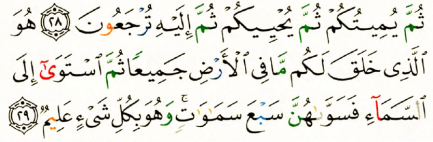 ثُمَّ يُمِيتُكُمْ ثُمَّ يُحْيِيكُمْ ثُمَّ إِلَيْهِ تُرْجَعُونَ ٢٨ هُوَ
الَّذِى خَلَقَ لَكُم مَّا فِى الْأَرْضِ جَمِيعًا ثُمَّ اسْتَوَىٰٓ إِلَى
السَّمَآءِ فَسَوَّىٰهُنَّ سَبْعَ سَمَٰوَٰتٍ ۚ وَهُوَ بِكُلِّ شَىْءٍ عَلِيمٌ ٢٩